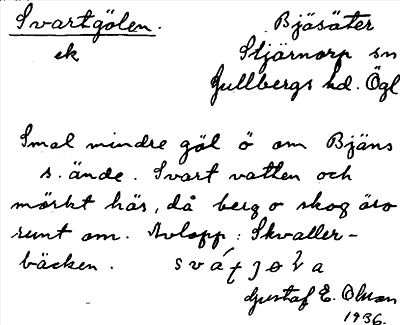 Svartgölen.
ek
Bjäsäter
Stjärnorp sn
Gullbergs hd. Ögl
Smal mindre göl ö om Bjäns
s. ände. Svart vatten och
mörkt här, då berg o skog äro
runt om. Avlopp: Skvaller-
bäcken.
Gustaf E. Olsson
1936.